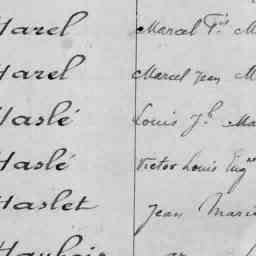 Harel Marcel Fçis M
Harel Marcel Jean M
Haslé Louis Jh Ma
Haslé Victor Louis Eugne
Haslet Jean Marie